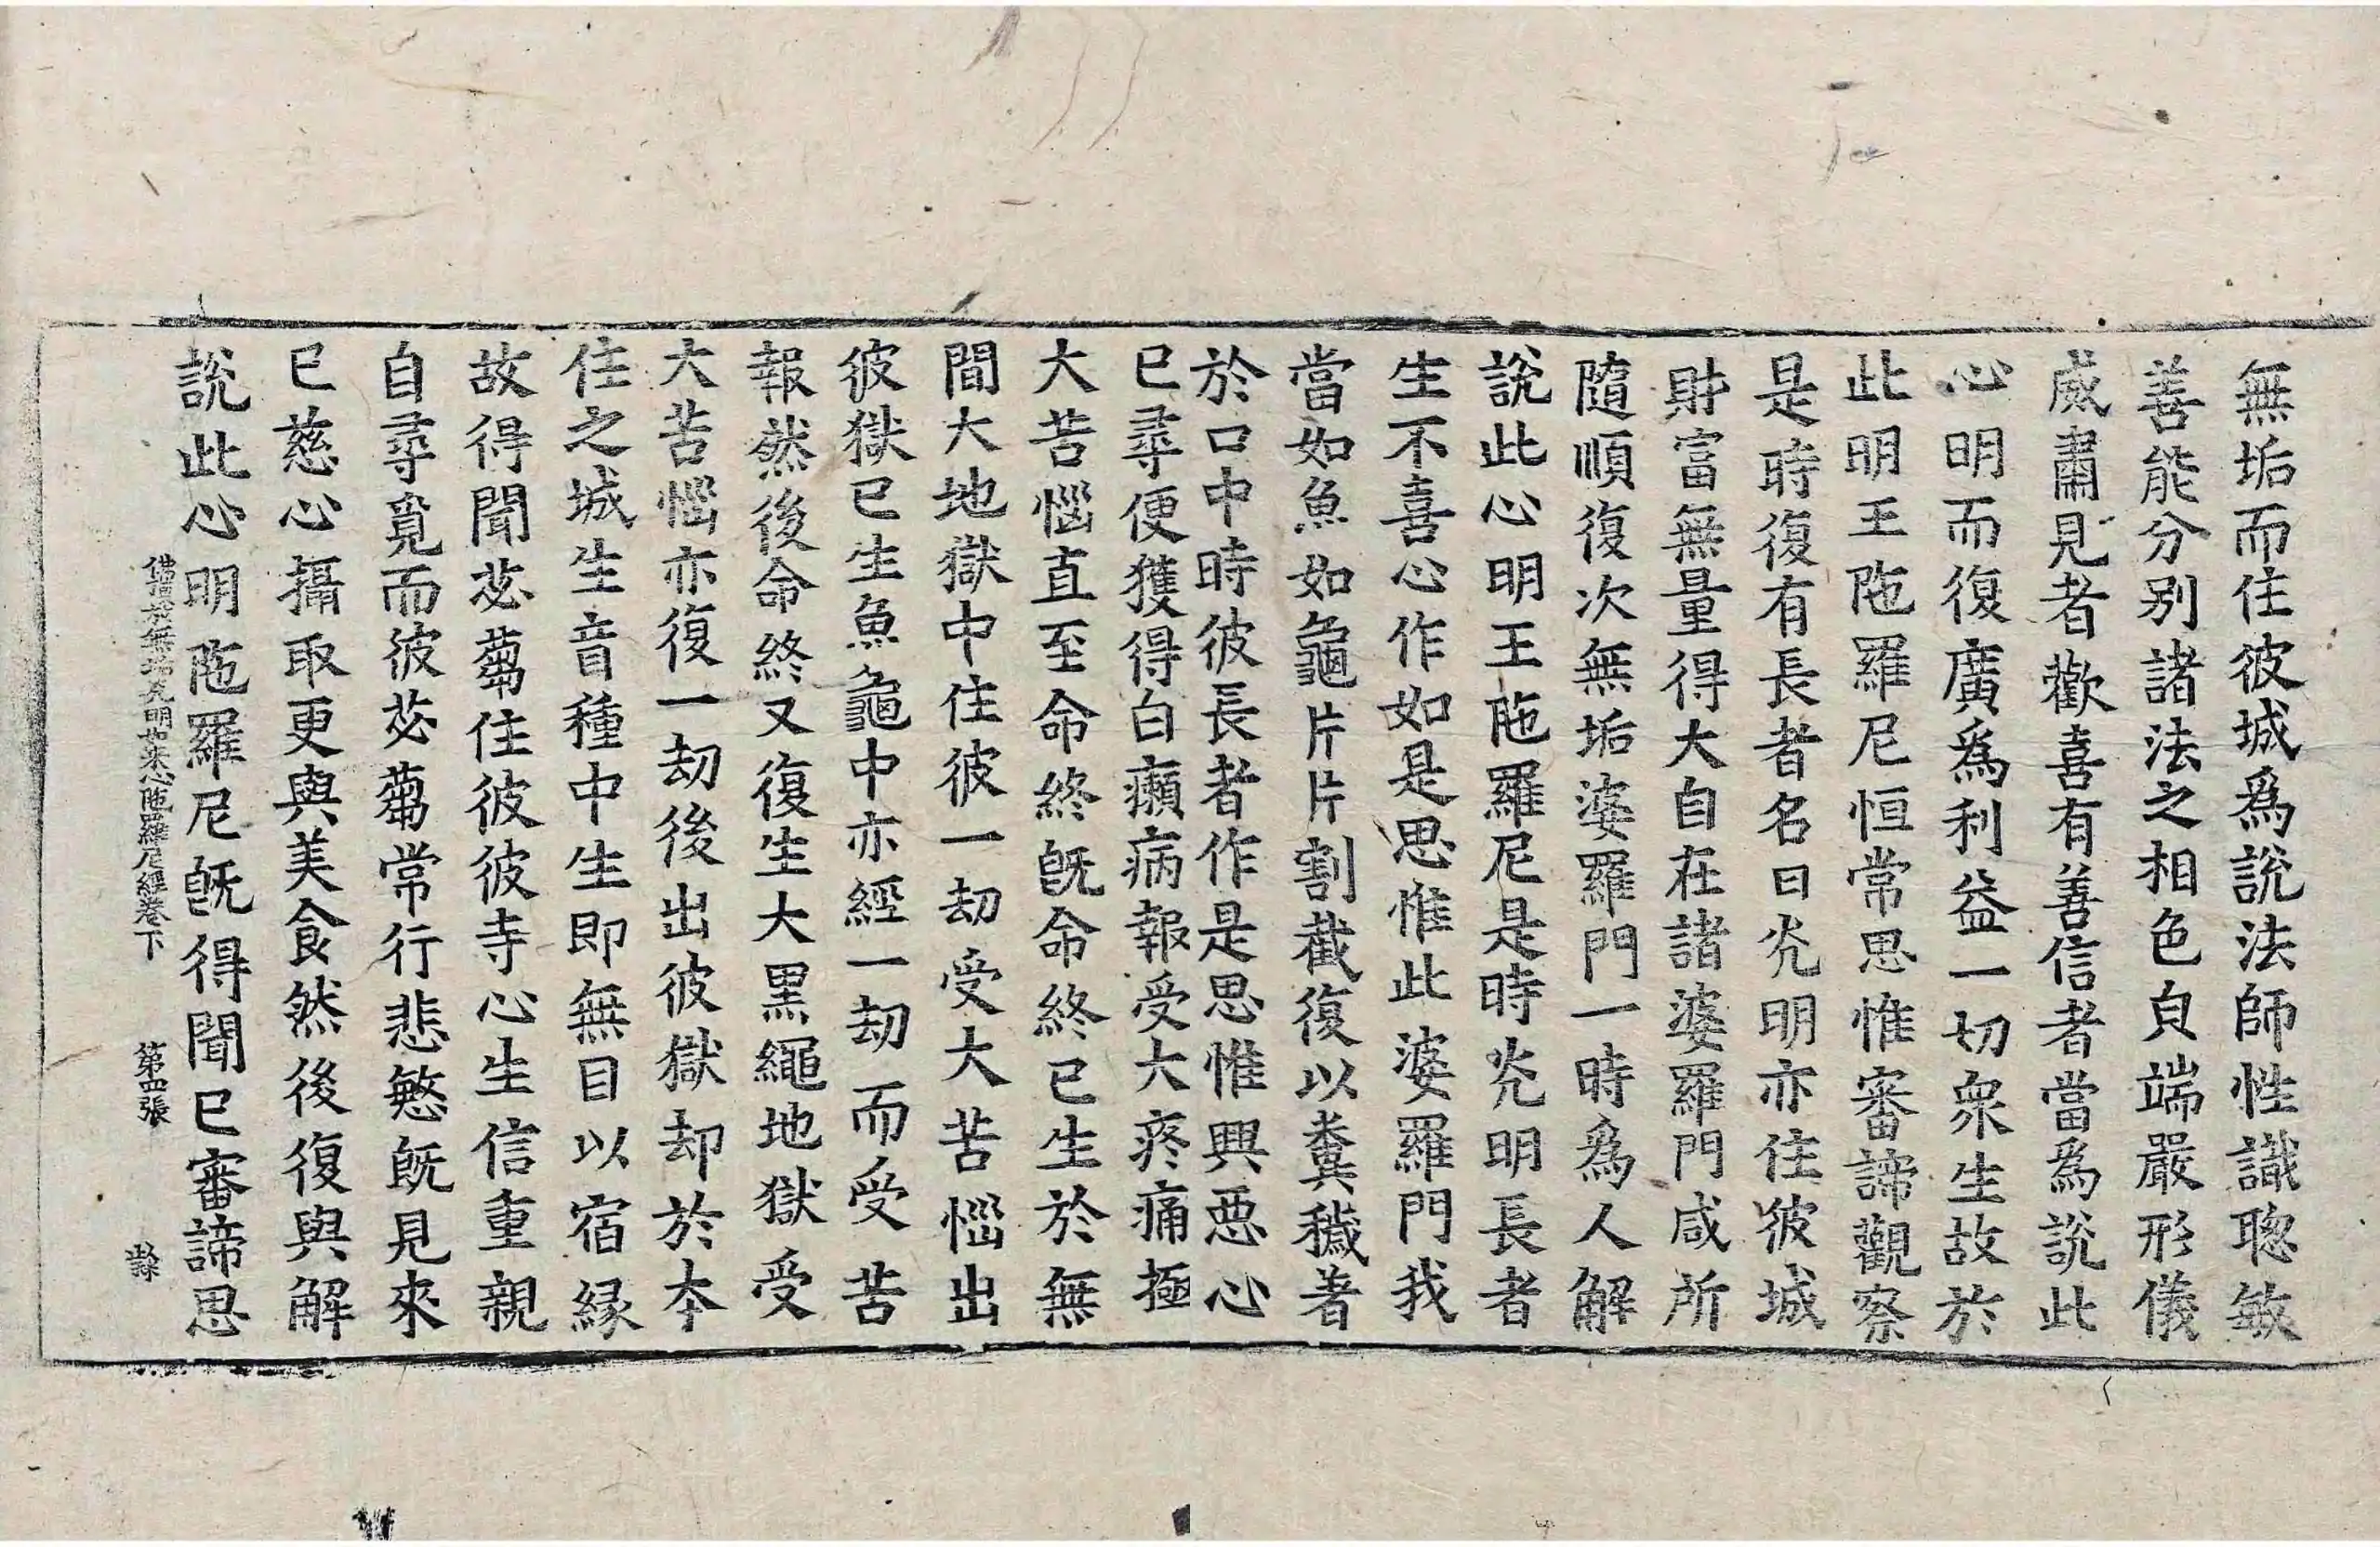 無垢而住彼城爲說法師性識聦敏
善能分别諸法之相色皃端嚴形儀
威肅見者歡喜有善信者當爲說此
心明而復廣爲利益一切衆生故於
此明王陁羅尼恒常思惟審諦觀察
是時復有長者名曰光明亦住彼城
財富無量得大自在諸婆羅門咸所
隨順復次無垢婆羅門一時爲人解
說此心明王陁羅尼是時光明長者
生不喜心作如是思惟此婆羅門我
當如魚如龜片片割截復以糞穢著
於口中時彼長者作是思惟興惡心
已尋便獲得白癩病報受大疼痛極
大苦惱直至命終旣命終已生於無
間大地獄中住彼一劫受大苦惱出
彼獄已生魚龜中亦經一劫而受苦
報然後命終又復生大黑繩地獄受
大苦惱亦復一劫後出彼獄却於本
住之城生盲種中生即無目以宿緣
故得聞苾蒭住彼彼寺心生信重親
自尋覓而彼苾蒭常行悲愍旣見來
已慈心攝取更與美食然後復與解
說此心明陁羅尼旣得聞已審諦思
佛頂放無垢光明如来心陁羅尼經卷下 第四張